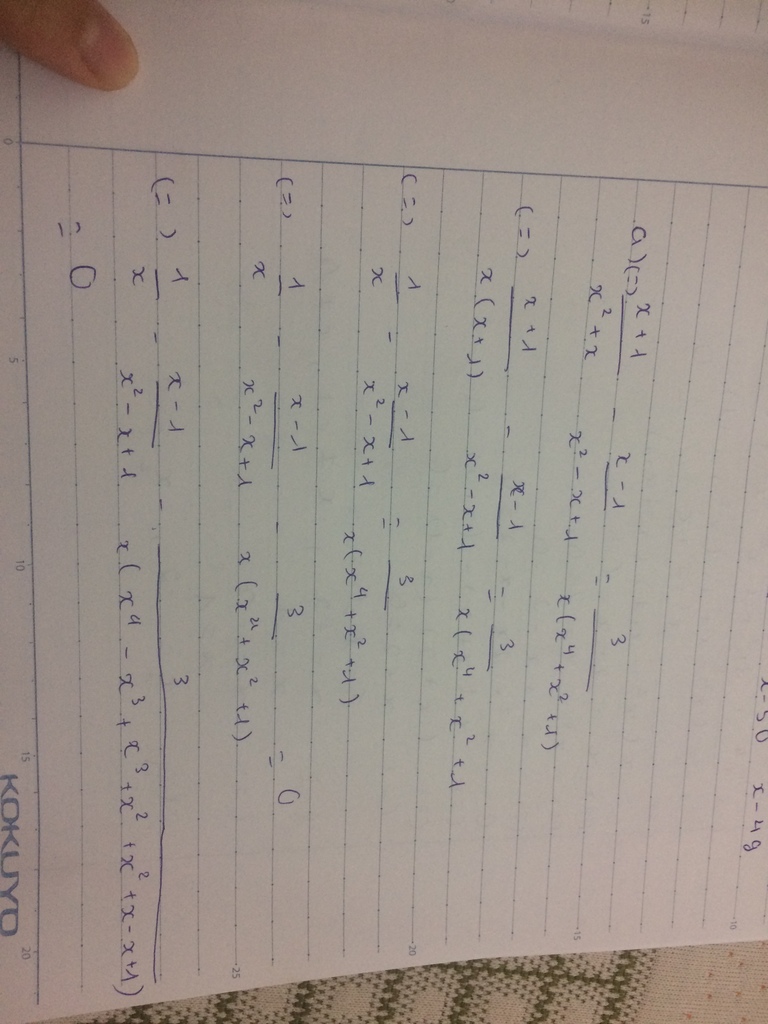 x-50 x-49
a) (=) x+1/x²+x - x-1/x²-x+1 = 3/x(x⁴+x²+1)
(=) x+1/x(x+1) - x-1/x²-x+1 = 3/x(x⁴+x²+1
(=) 1/x - x-1/x²-x+1 = 3/x(x⁴+x²+1)
(=) 1/x - x-1/x²-x+1 - 3/x(x⁴+x²+1) = 0
(=) 1/x - x-1/x²-x+1 - 3/x(x⁴-x³+x³+x²+x²+x-x+1)
= 0
0 5 10 15 20
-10
-15
-20
-25
-15
KOKUYO